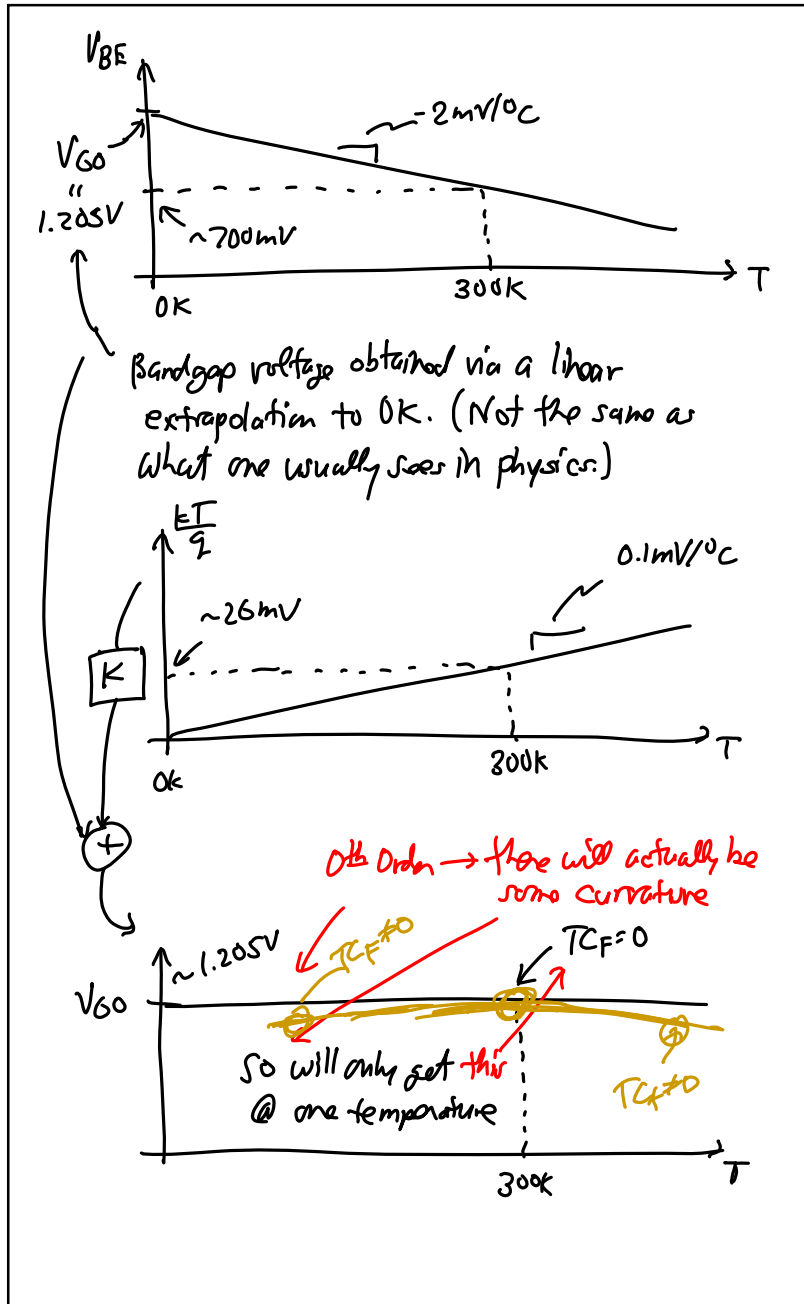 V_BE
-2mV/°C
V_G0
"
1.205V
~700mV
0K
300K
T
Bandgap voltage obtained via a linear
extrapolation to 0K. (Not the same as
what one usually sees in physics.)
kT/q
0.1mV/°C
~26mV
K
0K
300K
T
+
0th Order → there will actually be
some curvature
~1.205V
TC_F≠0
TC_F=0
V_G0
so will only get this
@ one temperature
TC_F≠0
300K
T